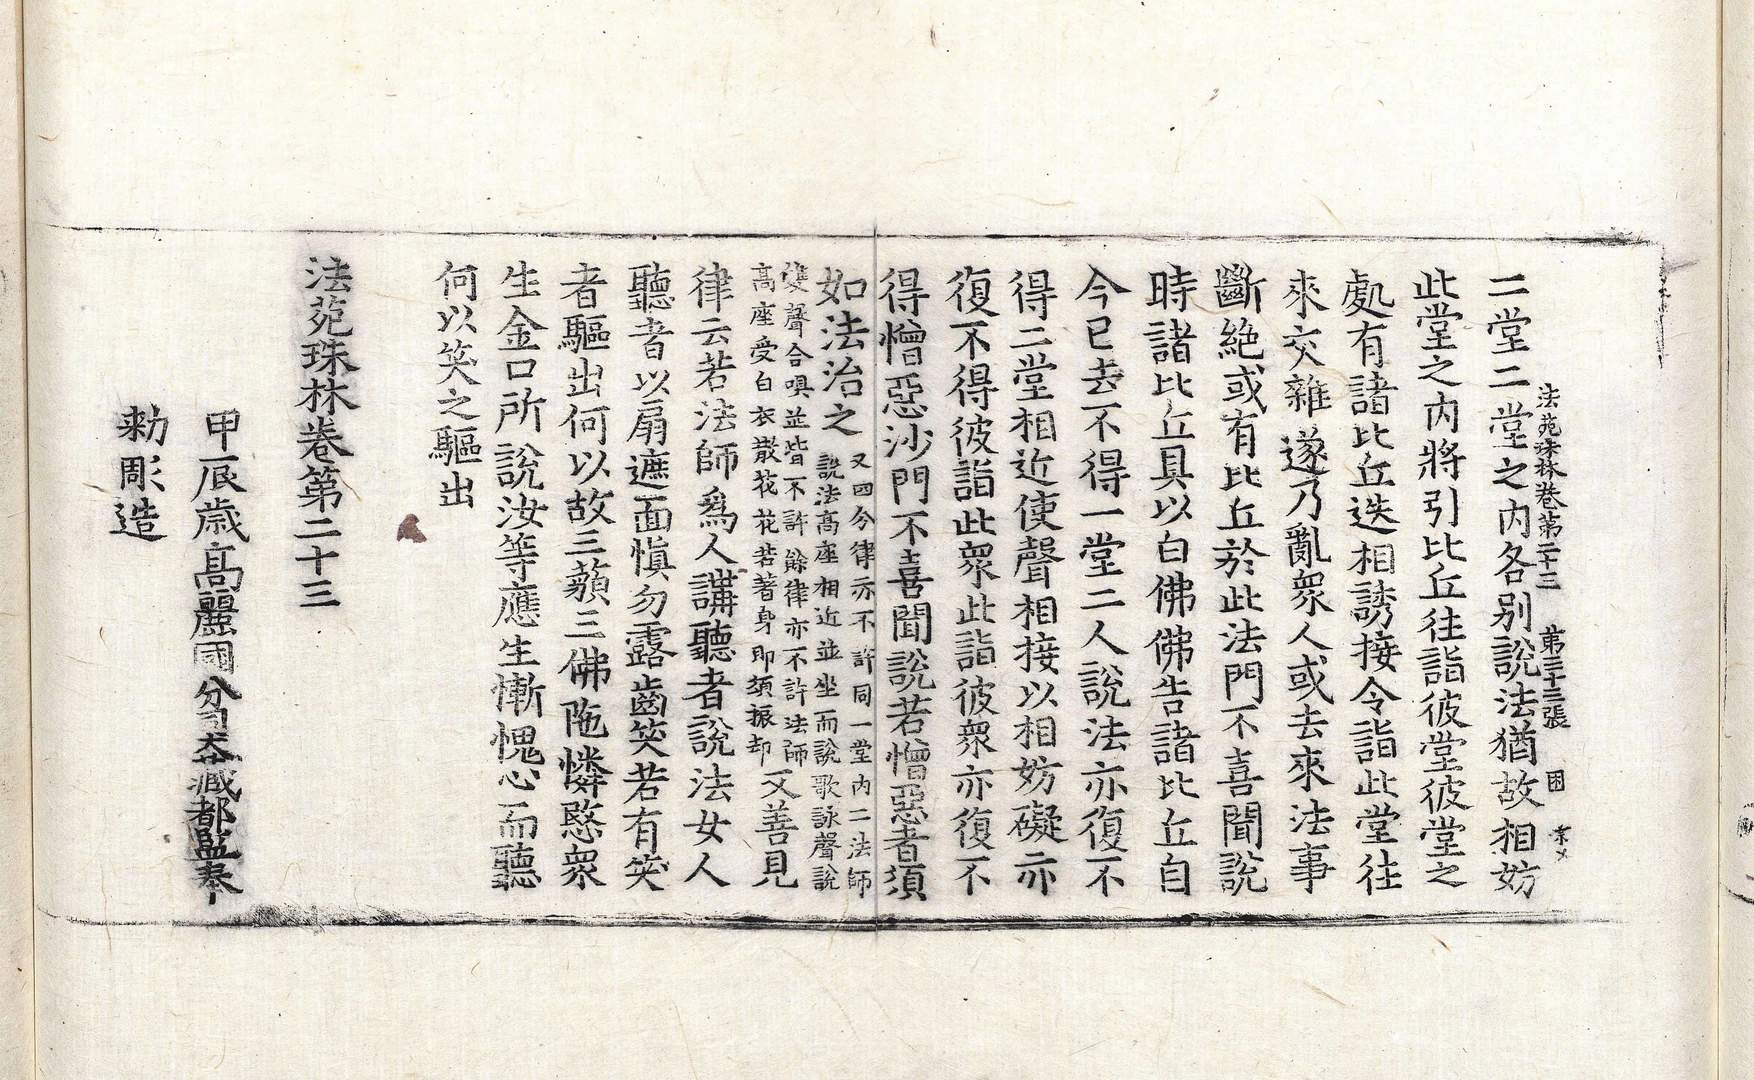 法苑珠林卷第二十三 第三十三張 困
二堂二堂之内各別說法猶故相妨
此堂之内將引比丘往詣彼堂彼堂之
處有諸比丘迭相誘接令詣此堂往
來交雜遂乃亂衆人或去來法事
斷絶或有比丘於此法門不喜聞說
時諸比丘具以白佛佛告諸比丘自
今已去不得一堂二人說法亦復不
得二堂相近使聲相接以相妨礙亦
復不得彼詣此衆此詣彼衆亦復不
得憎惡沙門不喜聞說若憎惡者須
如法治之又四分律亦不許同一堂内二法師
說法高座相近並坐而說歌詠聲說
雙聲合唄並皆不許餘律亦不許法師
高座受白衣散花花若著身即須振却又善見
律云若法師爲人講聽者說法女人
聽者以扇遮面愼勿露齒笑若有笑
者驅出何以故三藐三佛陁憐愍衆
生金口所說汝等應生慚愧心而聽
何以笑之驅出
法苑珠林卷第二十三
甲辰歲高麗國分司大藏都監奉
勑彫造